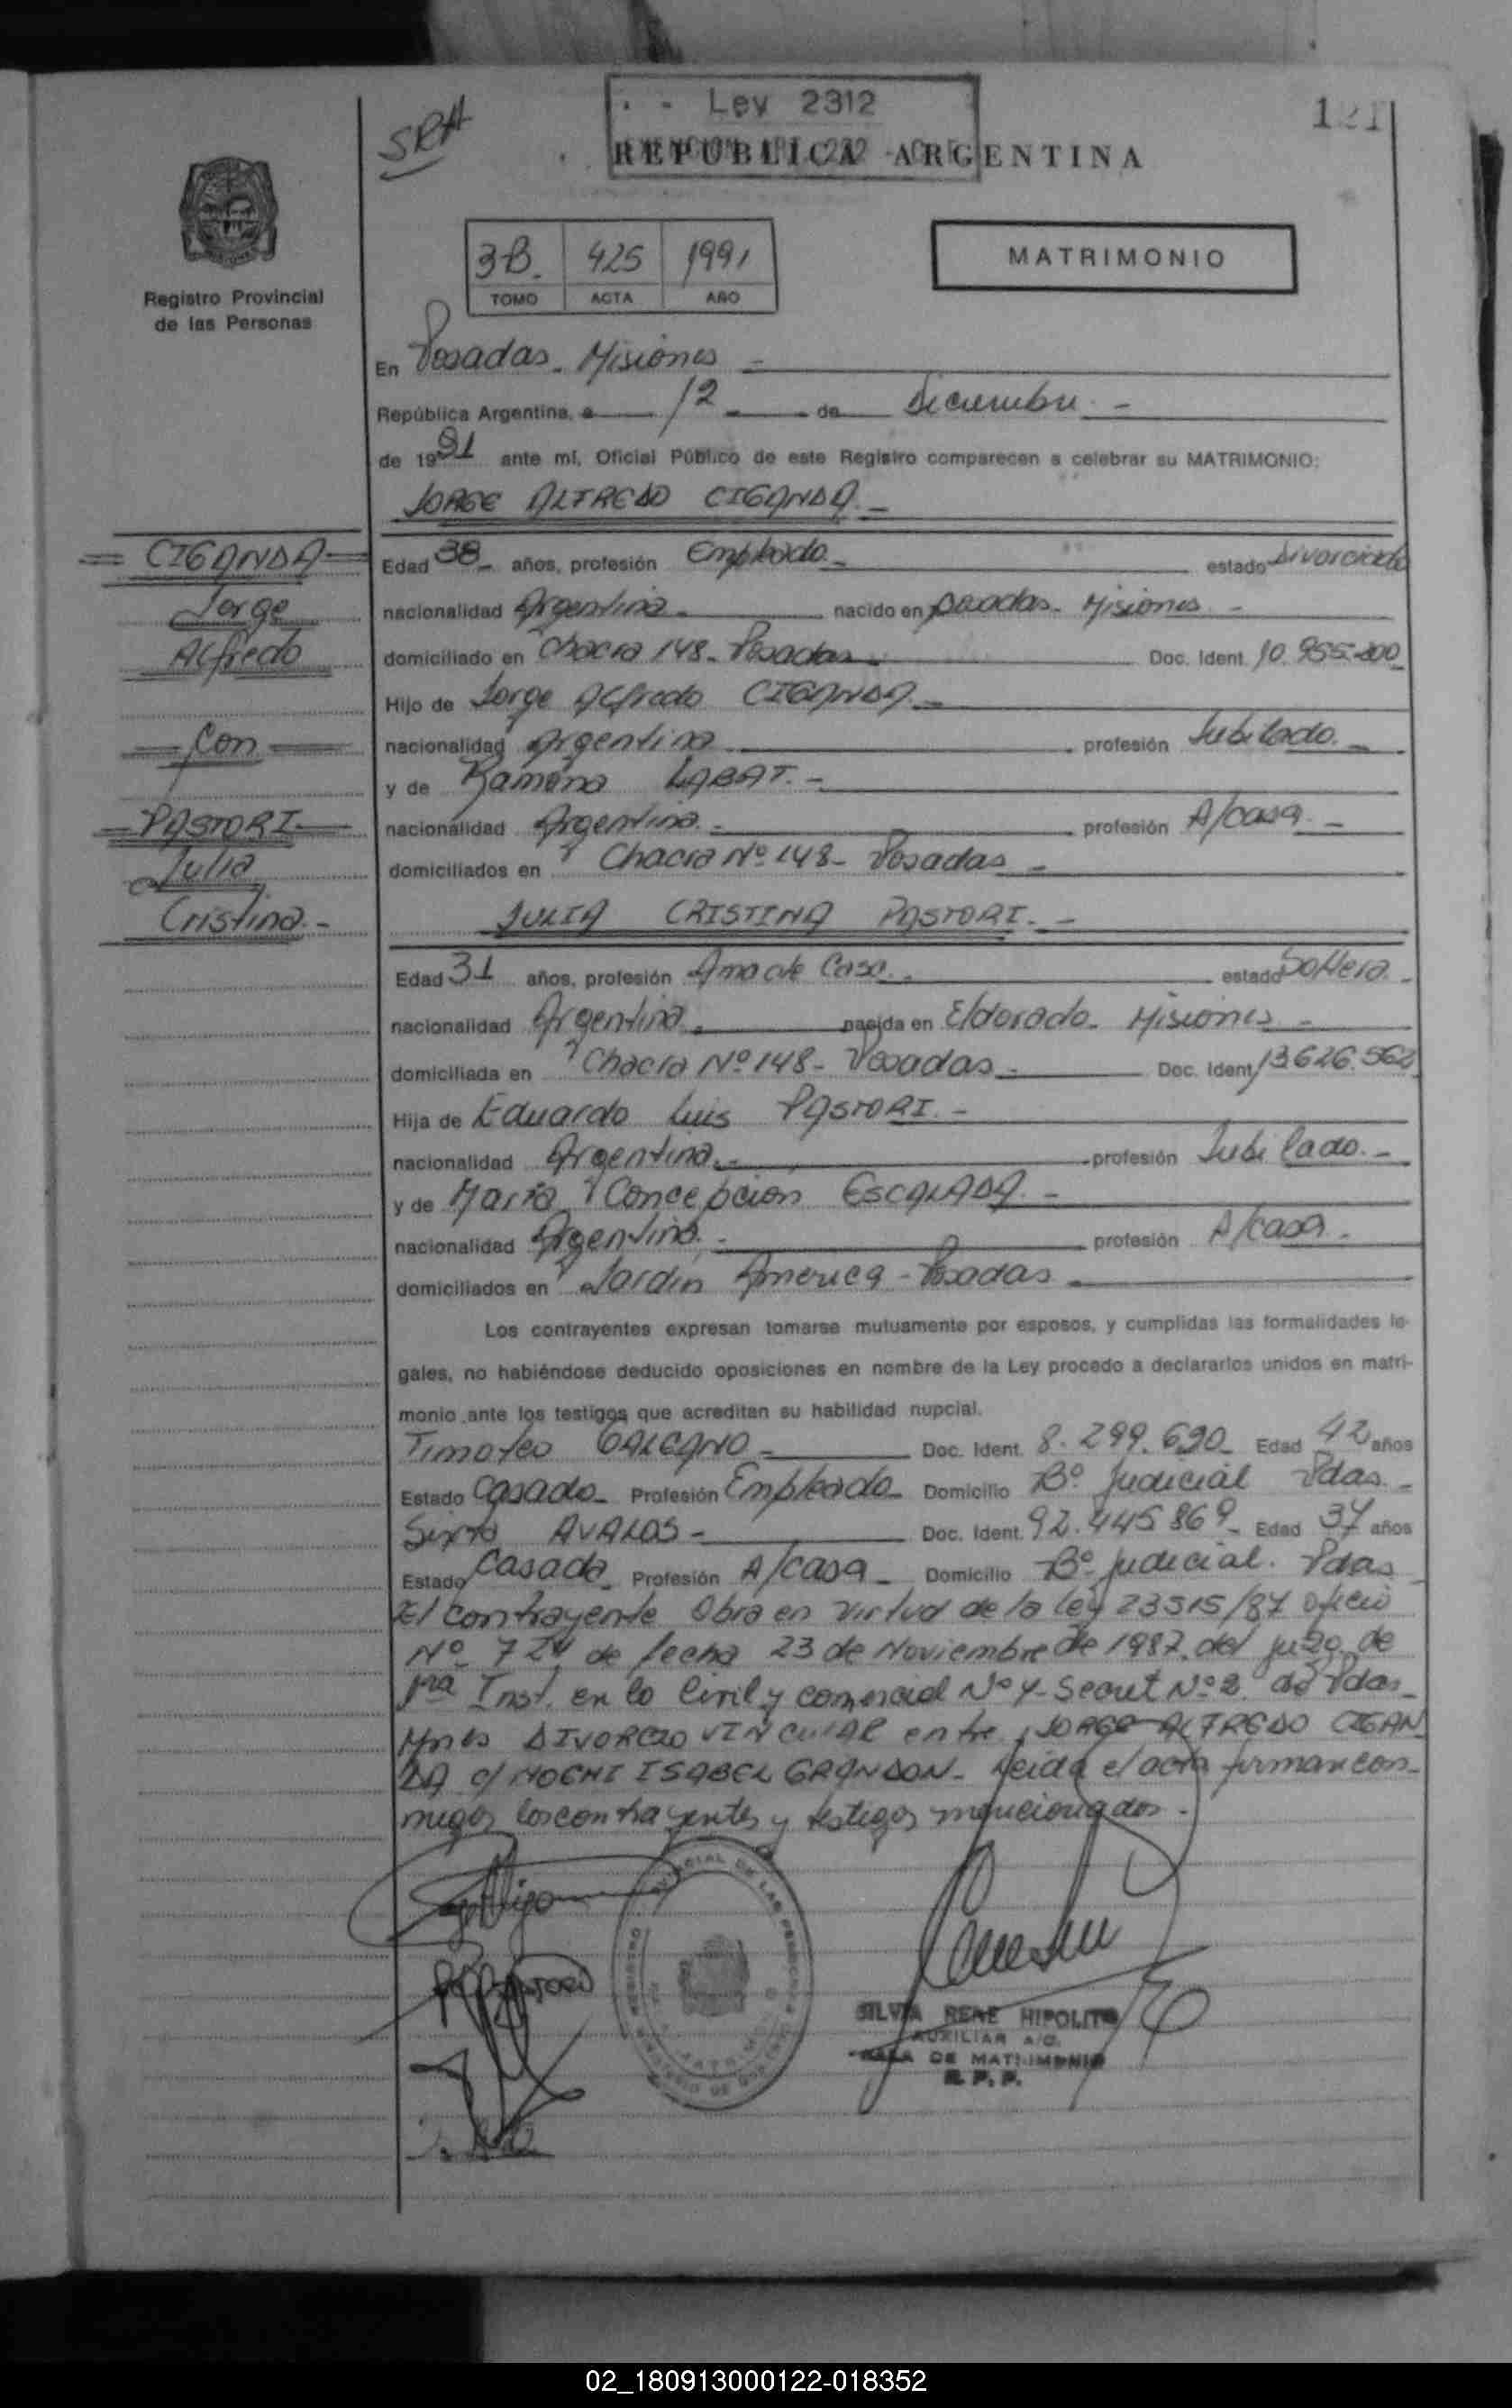 Ley 2312
SRA
121
REPUBLICA ARGENTINA
Registro Provincial
de las Personas
3-B. 425 1991
TOMO ACTA AÑO
MATRIMONIO
En Posadas. Misiones -
República Argentina, a 12 de Diciembre. -
de 1991 ante mí, Oficial Público de este Registro comparecen a celebrar su MATRIMONIO:
JORGE ALFREDO CIGANDA. -
= CIGANDA =
Jorge
Alfredo
= Con =
= PASTORI =
Julia
Cristina. -
Edad 38 años, profesión Empleado. - estado Divorciado
nacionalidad Argentina. nacido en posadas. Misiones -
domiciliado en Chacra 148. Posadas Doc. Ident. 10.955.200
Hijo de Jorge Alfredo CIGANDA. -
nacionalidad Argentina profesión Jubilado. -
y de Ramona LABAT. -
nacionalidad Argentina. - profesión A/casa. -
domiciliados en Chacra Nº 148 - Posadas -
JULIA CRISTINA PASTORI. -
Edad 31 años, profesión Ama de Casa. estado Soltera. -
nacionalidad Argentina. nacida en Eldorado. Misiones -
domiciliada en Chacra Nº 148 - Posadas - Doc. Ident. 13.626.562
Hija de Eduardo Luis PASTORI. -
nacionalidad Argentina. - profesión Jubilado. -
y de María Concepción ESCALADA. -
nacionalidad Argentina. - profesión A/casa. -
domiciliados en Jardín América - Posadas
Los contrayentes expresan tomarse mutuamente por esposos, y cumplidas las formalidades le-
gales, no habiéndose deducido oposiciones en nombre de la Ley procedo a declararlos unidos en matri-
monio ante los testigos que acreditan su habilidad nupcial.
Timoteo GALEANO - Doc. Ident. 8.299.690 Edad 42 años
Estado Casado - Profesión Empleado - Domicilio Bº Judicial Pdas. -
Sixta AVALOS - Doc. Ident. 92.445869 - Edad 37 años
Estado Casada Profesión A/casa - Domicilio Bº Judicial. Pdas
El contrayente Obra en virtud de la ley 23515/87 oficio
Nº 724 de fecha 23 de Noviembre de 1987. del juzg. de
1ra Inst. en lo Civil y comercial Nº 4 - Secret Nº 2. de Pdas -
Mnes DIVORCIO VINCULAR entre JORGE ALFREDO CIGAN
DA c/ NOEMI ISABEL GRANDON - Leida el acta firman con-
migo, los contrayentes y testigos mencionados. -
PASTORI
SILVIA RENE HIPOLITO
AUXILIAR A/C.
SALA DE MATRIMONIO
R. P. P.
02_180913000122-018352